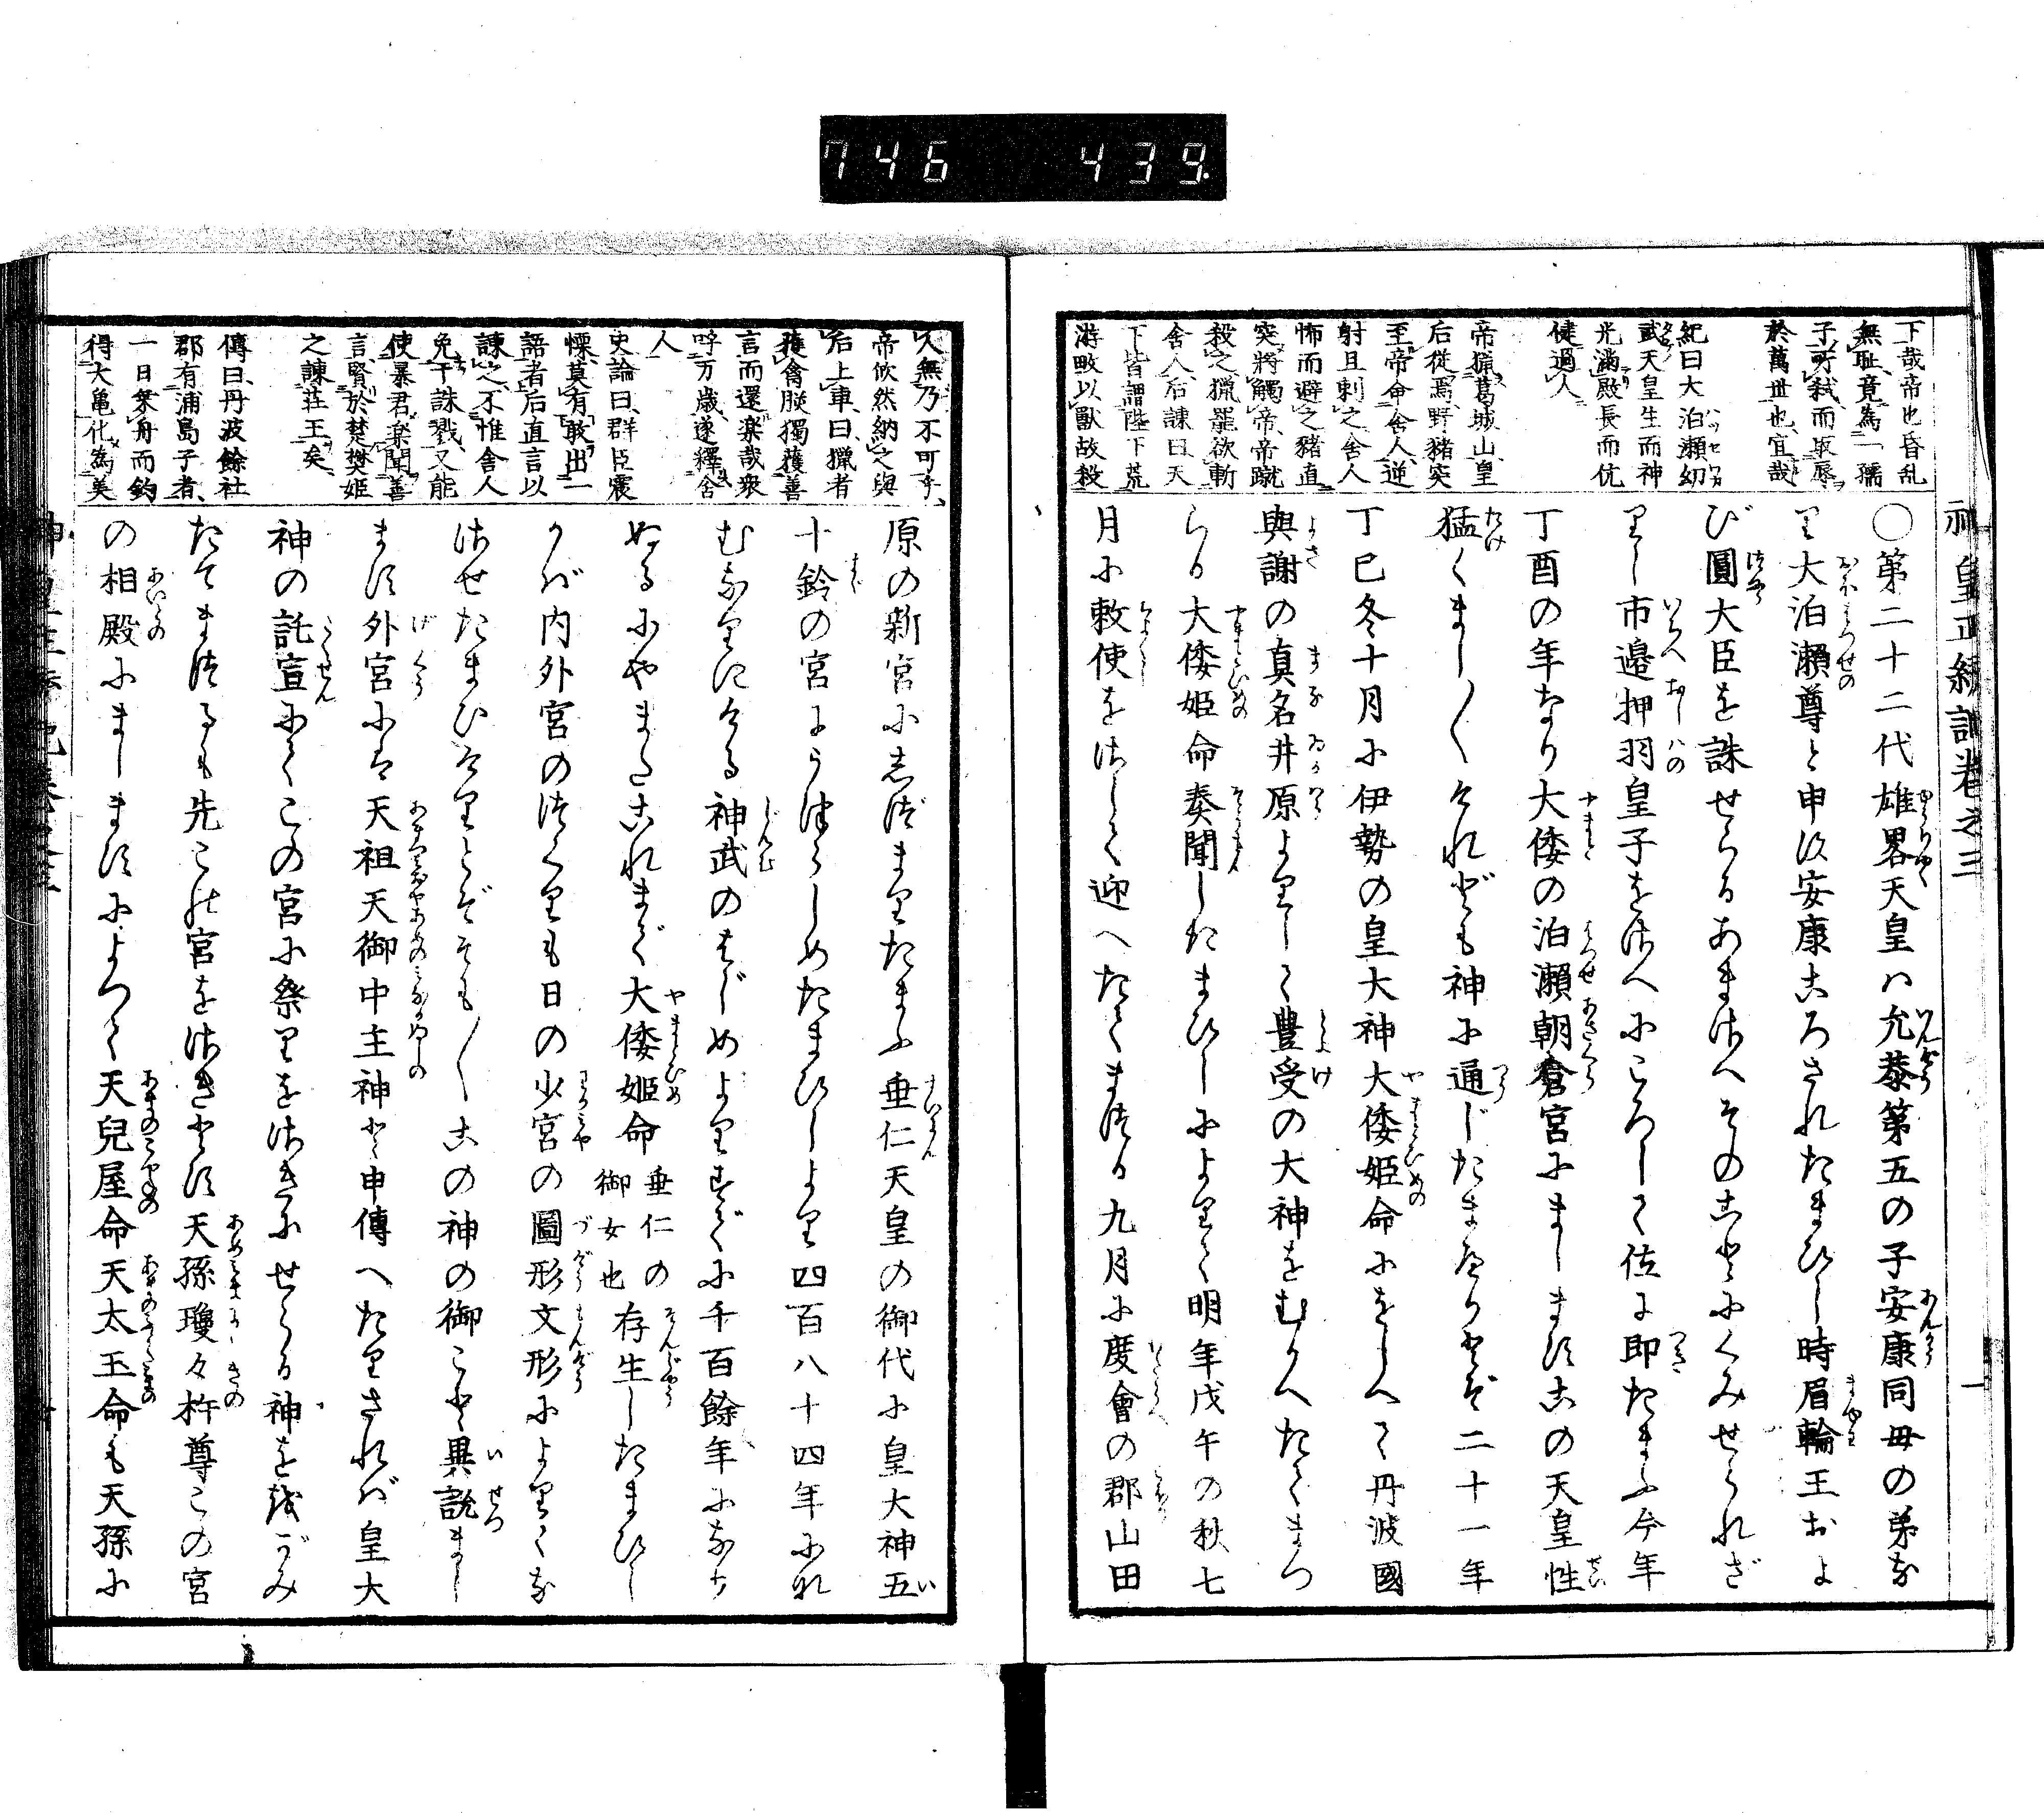 746 439.
下哉帝也昏乱
無耻、竟為一孺
子所弑、而取辱
於萬世也、宜哉
紀曰大泊瀬幼
武天皇生而神
光満殿長而伉
健過人
帝猟葛城山、皇
后従焉、野猪突
至、帝命舎人、逆
射且刺之、舎人
怖而避之、猪直
突将觸帝、帝蹴
殺之、猟罷欲斬
舎人、后諫曰、天
下皆謂陛下荒
游畋以獣故殺
○第二十二代雄畧天皇ハ允恭第五の子安康同母の弟な
り大泊瀬尊と申す安康ころされたまひし時眉輪王およ
び圓大臣を誅せらるあまさへそのことにくみせられざ
りし市邉押羽皇子をさへにころして位に即たまふ今年
丁酉の年なり大倭の泊瀬朝倉宮にまします この天皇性
猛くまし〱けれども神に通じたまへりとぞ二十一年
丁巳冬十月に伊勢の皇大神大倭姫命にをしへて丹波國
與謝の真名井原よりして豊受の大神をむかへたてまつ
らる大倭姫命奏聞したまひしによりて明年戊午の秋七
月に敕使をさして迎へたてまつる九月に度會の郡山田
人無乃不可乎、
帝欣然納之與
后上車、曰、猟者
獲禽朕獨獲善
言而還楽哉衆
呼万歳、遂釋舎
人
史論曰、群臣震
慄、莫有敢出一
語者后直言以
諌之、不惟舎人
免于誅戮、又能
使暴君楽聞善
言、賢於楚樊姫
之諫荘王矣
傳曰、丹波餘社
郡有浦島子者、
一日乗舟而釣
得大亀化為美
原の新宮にしづまりたまふ垂仁天皇の御代に皇大神五
十鈴の宮にうつらしめたまひしより四百八十四年にな
むなりにける神武のはじめよりすでに千百餘年になり
ぬるにやまたこれまで大倭姫命垂仁の御女也存生したまひし
かば内外宮のつくりも日の少宮の圖形文形によりてな
させたまひけりとぞそも〱この神の御こと異説まし
ます外宮には天祖天御中主神と申傳へたりされば皇大
神の託宣にてこの宮に祭りをさきにせらる神を拝がみ
たてまつるも先この宮をさきとす天孫瓊々杵尊この宮
の相殿にましますによつて天兒屋命天太玉命も天孫に